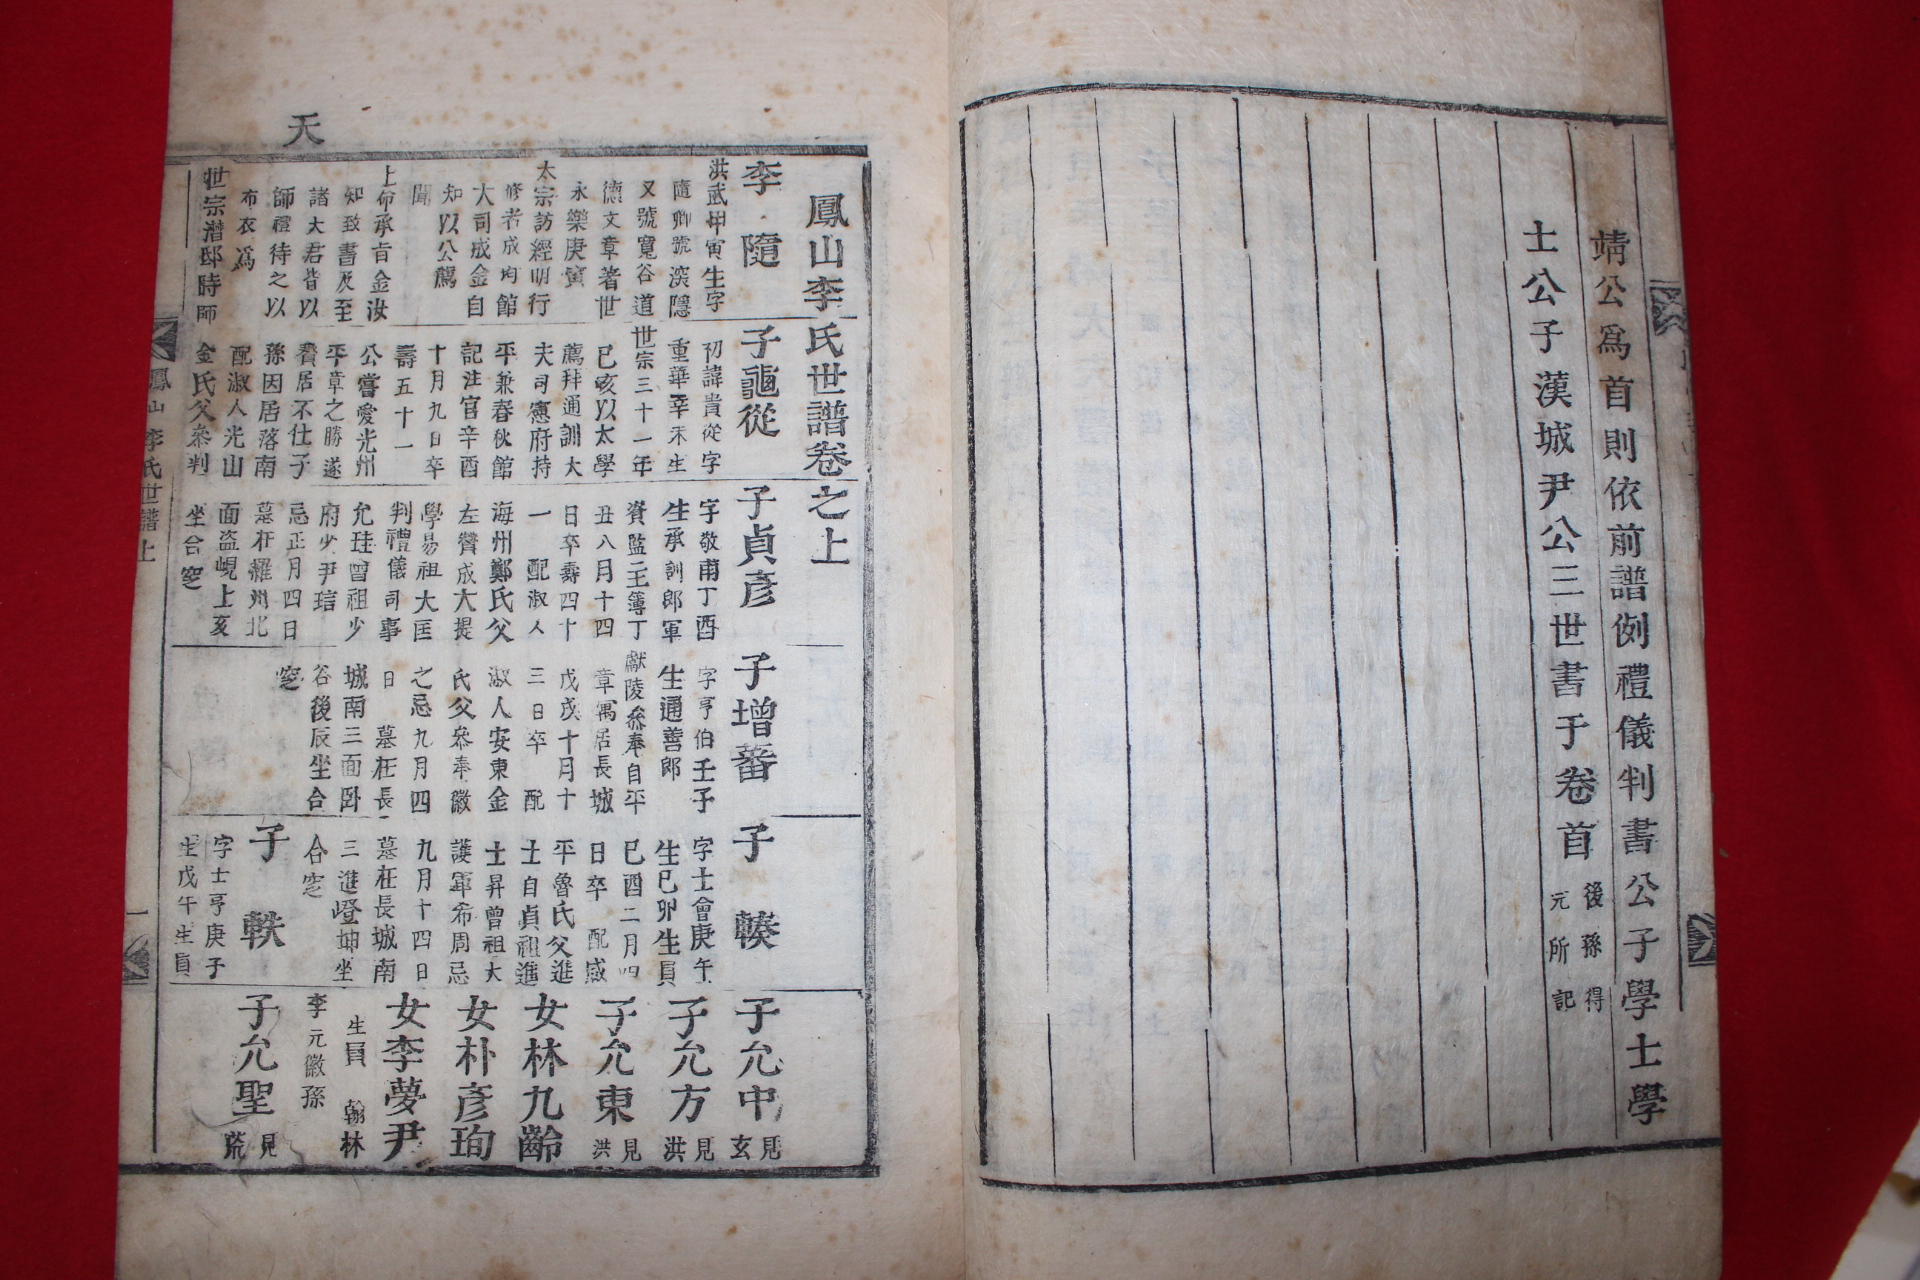 靖公爲首則依前譜例禮儀判書公子學士學
士公子漢城尹公三世書于卷首
後孫得
元所記
天
鳳山李氏世譜卷之上
李隨
洪武甲寅生字
隨卿號深隱
又號寬谷道
德文章著世
永樂庚寅
太宗訪經明行
修者成均館
大司成金自
知以公薦
聞
上命承旨金汝
知致書及至
諸大君皆以
師禮待之以
布衣爲
世宗潛邸時師
子龜從
初諱貴從字
重華辛未生
世宗三十一年
己亥以太學
薦拜通訓大
夫司憲府持
平兼春秋館
記注官辛酉
十月九日卒
壽五十一
公嘗愛光州
平章之勝遂
費居不仕子
孫因居落南
配淑人光山
金氏父叅判
子貞彥
字敬甫丁酉
生承訓郎軍
資監主簿丁
丑八月十四
日卒壽四十
一 配淑人
海州鄭氏父
左贊成大提
學易祖大匡
判禮儀司事
允珪曾祖少
府少尹瑎
忌正月四日
墓在羅州北
面盗峴上亥
坐合窆
子增蕃
字亨伯壬子
生通善郎
獻陵叅奉自平
章寓居長城
戊戌十月十
三日卒 配
淑人安東金
氏父叅奉徽
之忌九月四
日 墓在長
城南三面卧
谷後辰坐合
窆
子輳
字士會庚午
生己卯生員
己酉二月四
日卒 配咸
平魯氏父進
士自貞祖進
士昇曾祖大
護軍希周忌
九月十四日
墓在長城南
三進嶝坤坐
合窆
子軼
字士亨庚子
生戊午生員
子允中
見玄
子允方
見洪
子允東
見洪
女林九齡
女朴彥珣
女李夢尹
生員 翰林
李元徽孫
子允聖
見荒
鳳山李氏世譜上
一